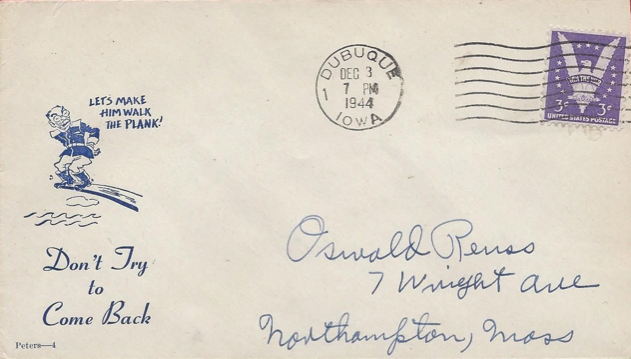 LET'S MAKE
HIM WALK
THE PLANK!
Don't Try
to
Come Back
Peters—4
DUBUQUE
DEC 3
7 PM
1944
1
IOWA
WIN THE WAR
3¢ 3¢
UNITED STATES POSTAGE
Oswald Reuss
7 Wright Ave
Northampton, Mass